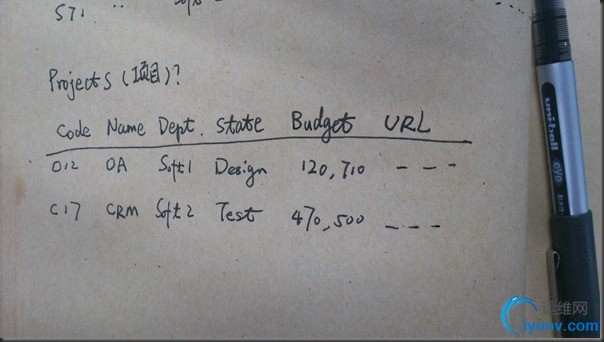 S71
Projects (项目)?
Code Name Dept. State Budget URL
O12 OA Soft1 Design 120,710 - - -
C17 CRM Soft2 Test 470,500 - - -
uni-ball eye
运维网
iyunv.com